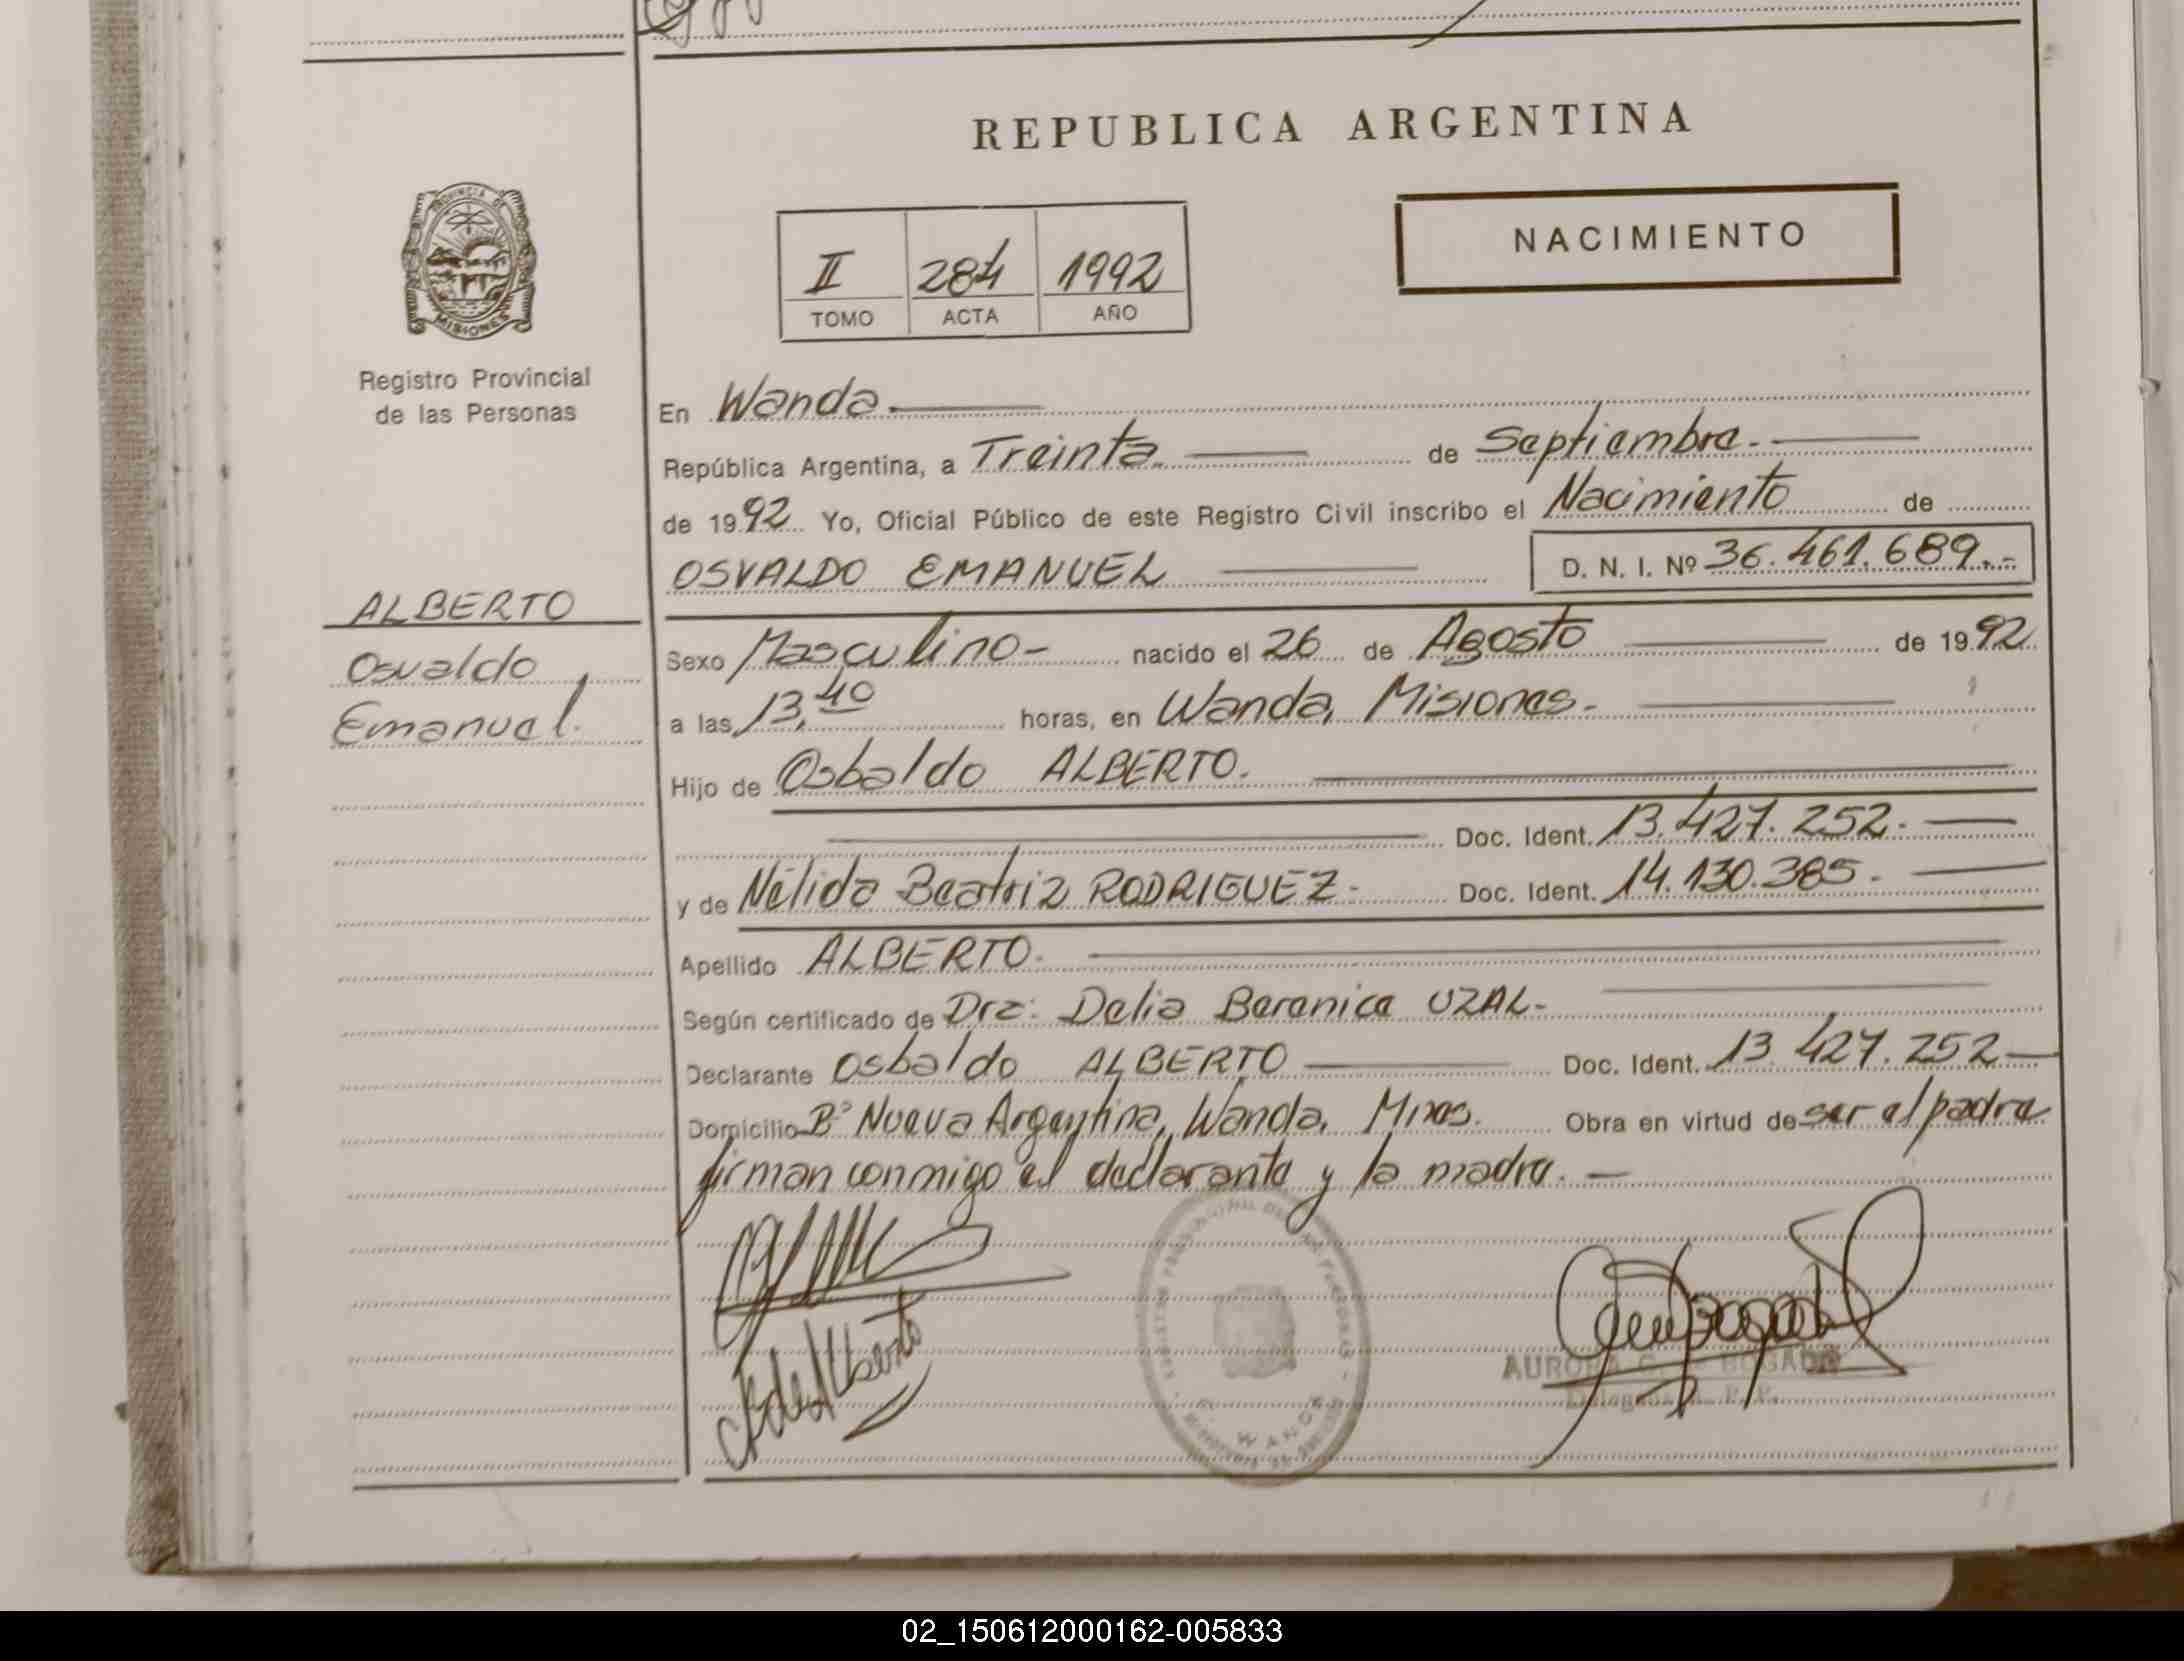 REPUBLICA ARGENTINA
PROVINCIA DE
MISIONES
Registro Provincial
de las Personas
II 284 1992
TOMO ACTA AÑO
NACIMIENTO
ALBERTO
Osvaldo
Emanuel.
En Wanda
República Argentina, a Treinta de Septiembre.
de 1992 Yo, Oficial Público de este Registro Civil inscribo el Nacimiento de
OSVALDO EMANUEL D. N. I. Nº 36.461.689.-
Sexo Masculino- nacido el 26 de Agosto de 1992
a las 13,40 horas, en Wanda, Misiones.-
Hijo de Osbaldo ALBERTO.
Doc. Ident. 13.427.252.-
y de Nélida Beatriz RODRIGUEZ- Doc. Ident. 14.130.385.-
Apellido ALBERTO.
Según certificado de Dra: Delia UZAL-
Declarante Osbaldo ALBERTO Doc. Ident. 13.427.252-
Domicilio Bº Nueva Argentina, Wanda, Mnes. Obra en virtud de ser el padre
firman conmigo el declarante y la madre.-
de Alberto
AURORA BOGADO
WANDA
02_150612000162-005833